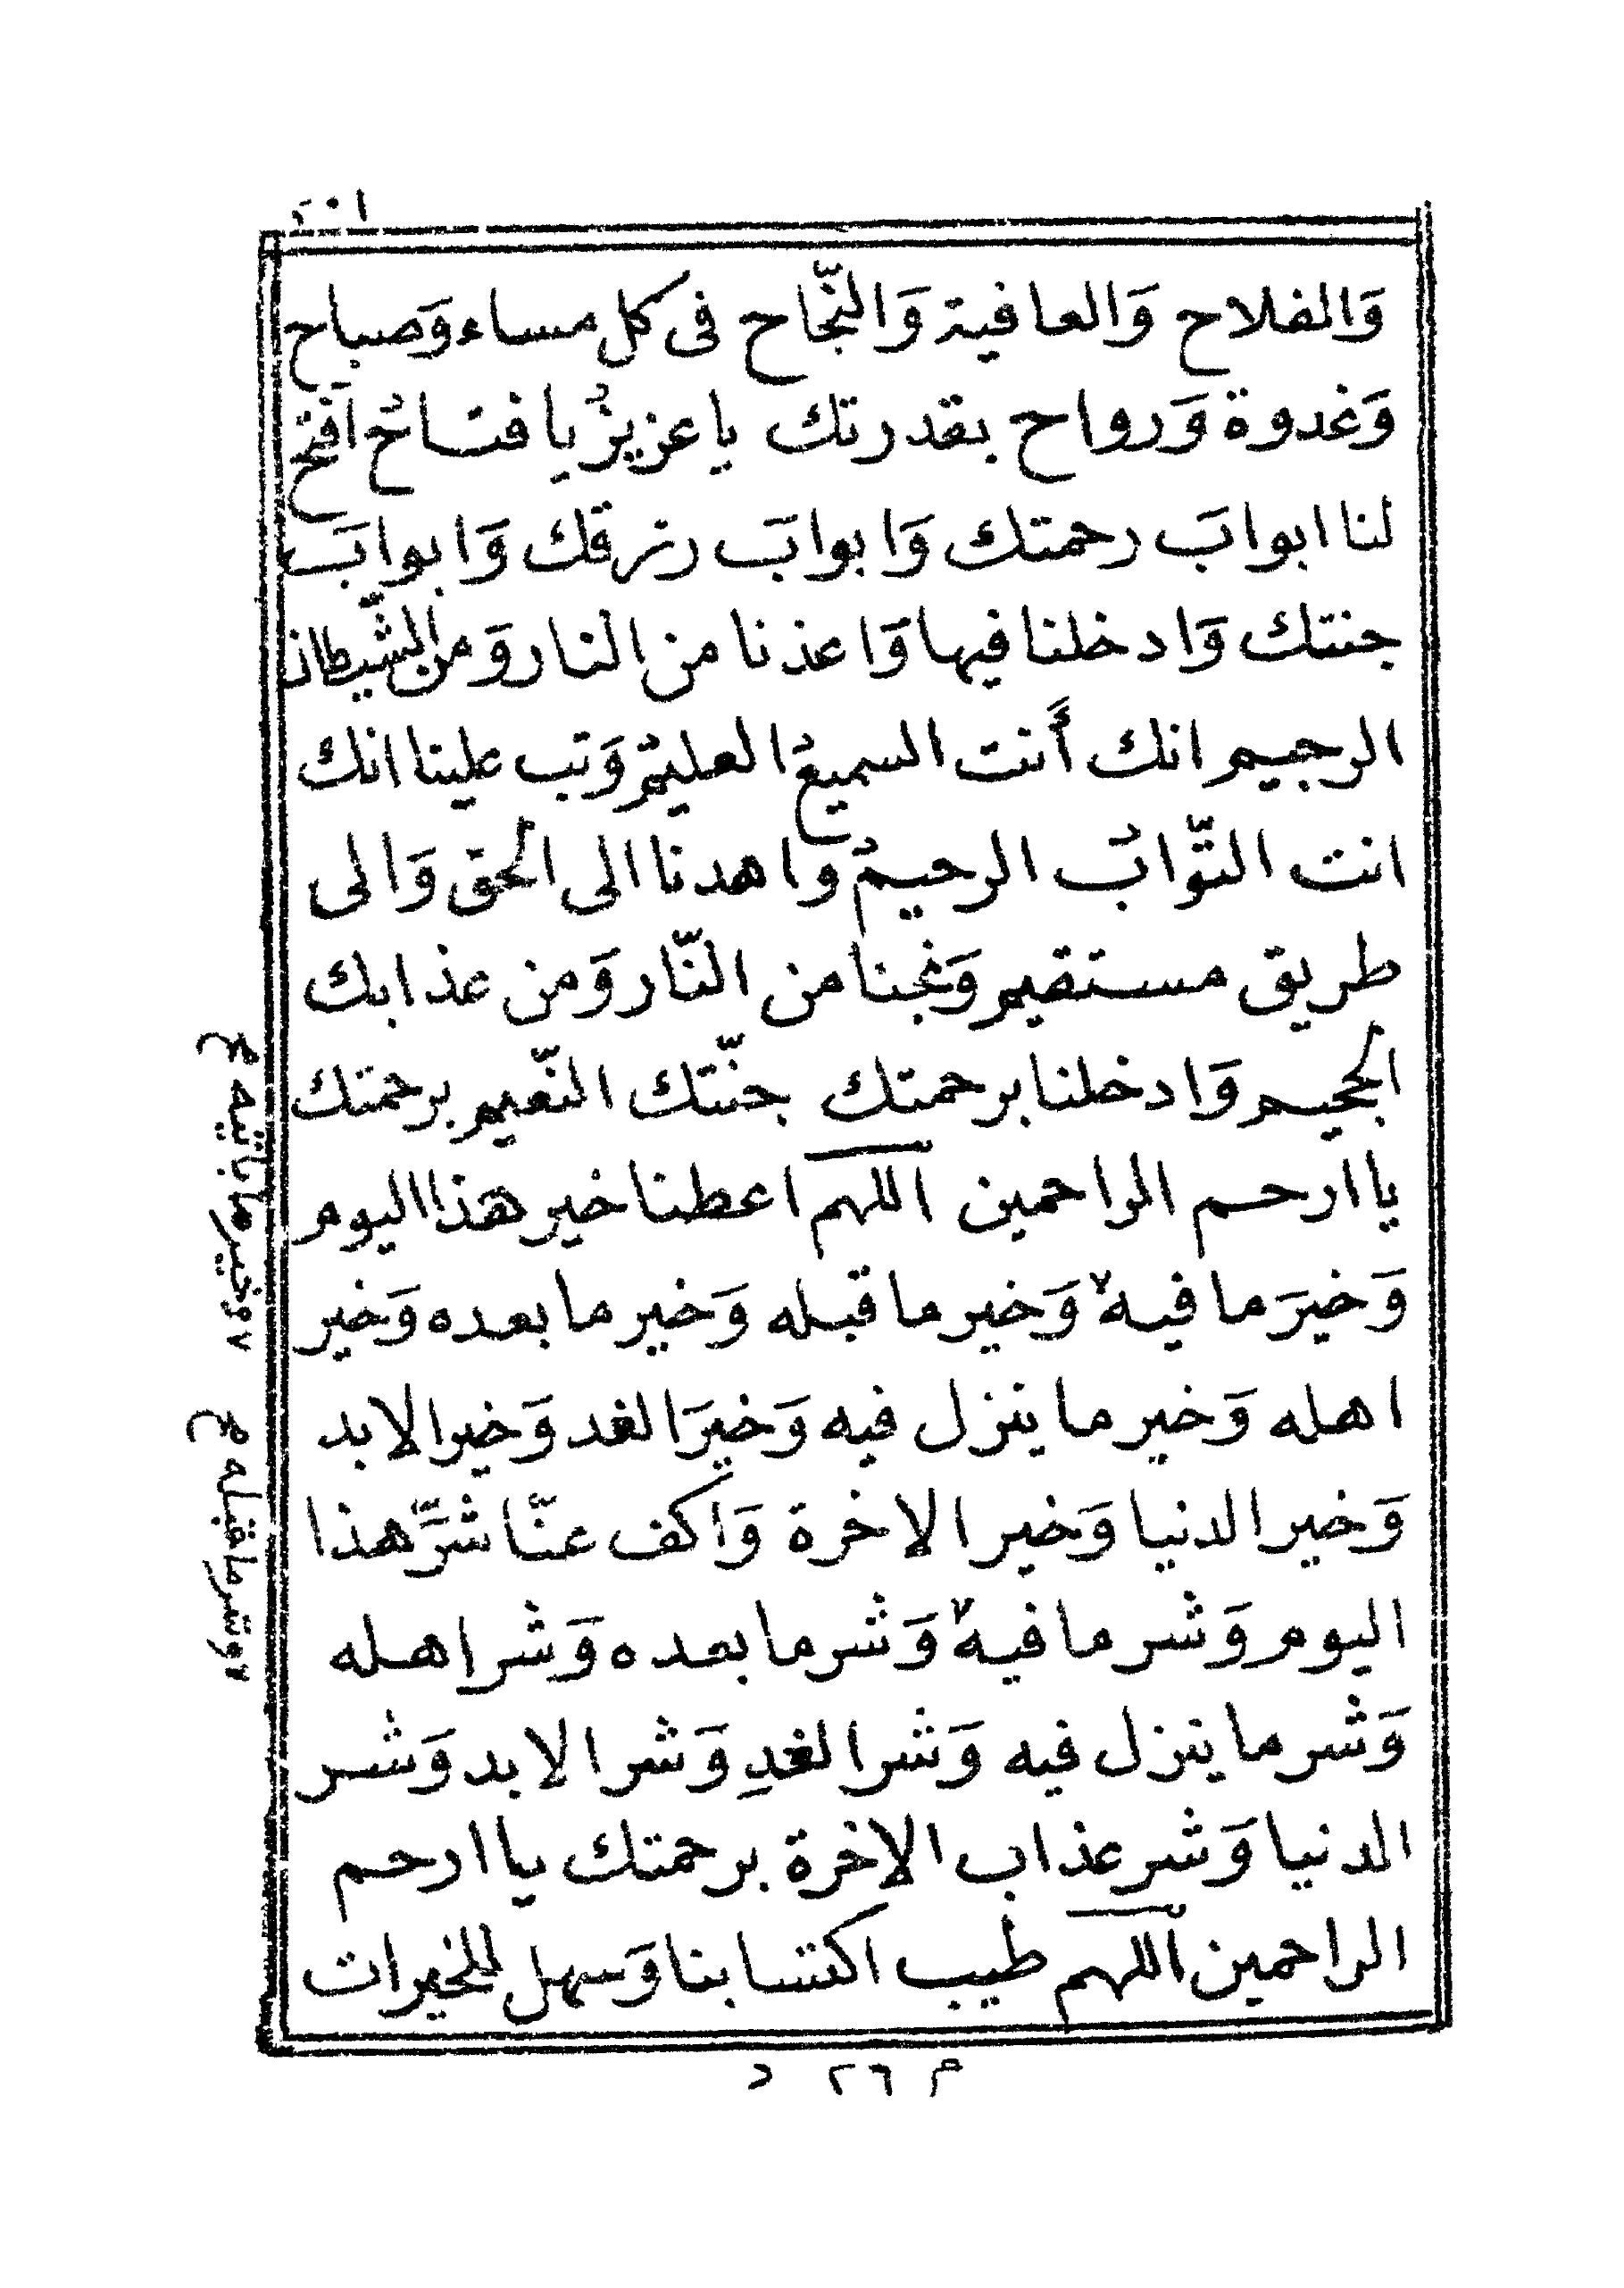 وَالفلاح وَالعافية وَالنّجاح فى كل مساء وَصباح
وَغدوة وَرواح بقدرتك يا عزيزُ يا فتاحُ افتح
لنا ابوابَ رحمتك وَابوابَ رزقك وَابوابَ
جنتك وَادخلنا فيها وَاعذنا من النار وَمن الشّيطان
الرجيم انك أَنت السميعُ العليمُ وَتب علينا انك
انت التّوابُ الرحيمُ واهدنا الى الحق وَالى
طريق مستقيم وَنجنا من النّار وَمن عذابك
الجحيم وَادخلنا برحمتك جنّتك النّعيم برحمتك
يا ارحم الراحمين اللهم اعطنا خير هذا اليوم
وَخيرَ ما فيه٧ وَخير ما قبله وَخير ما بعده وَخير
اهله وَخير ما ينزل فيه وَخيرَ الغد وَخير الابد
وَخير الدنيا وَخير الاخرة وَاكف عنّا شرَّ هذا
اليوم وَشر ما فيه٢ وَشر ما بعده وَشر اهله
وَشر ما ينزل فيه وَشر الغدِ وَشر الابد وَشر
الدنيا وَشر عذاب الاخرة برحمتك يا ارحم
الراحمين اللهم طيب اكتسابنا وَسهل للخيرات
٧ وخير ما ياتيه ع
٢ وشر ما قبله ع
م ٢٦ د